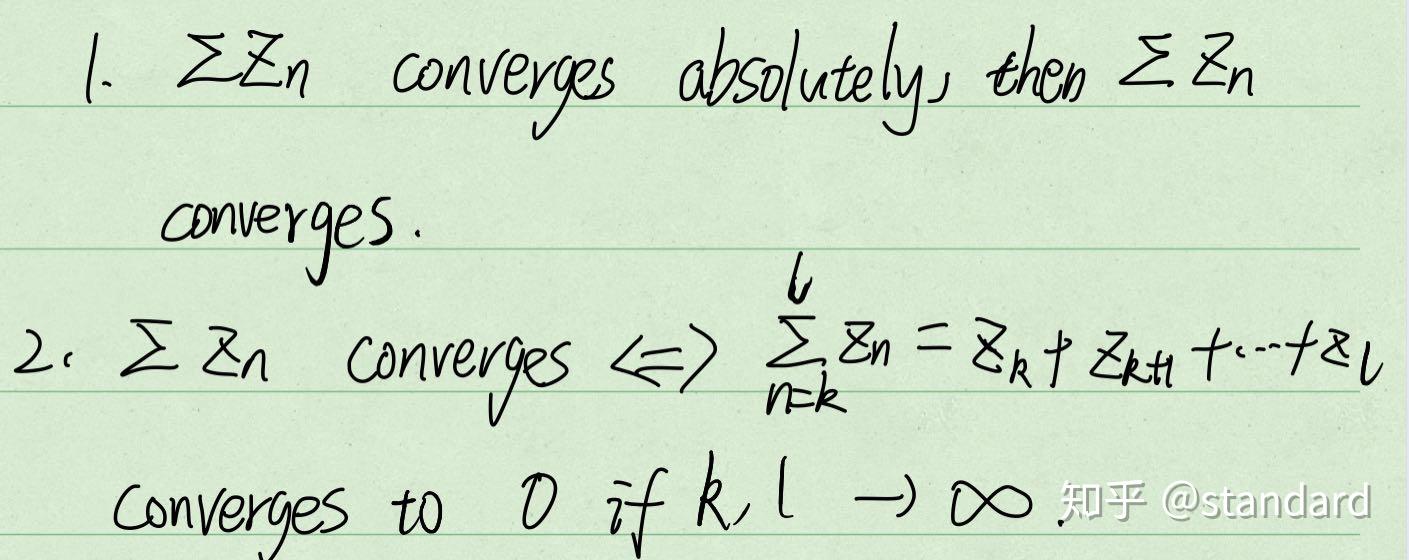 1. ΣZn converges absolutely, then ΣZn
converges.
2. ΣZn converges <=> Σ_{n=k}^{l} Zn = Zk + Zk+1 + ... + Zl
converges to 0 if k, l → ∞.
知乎 @standard